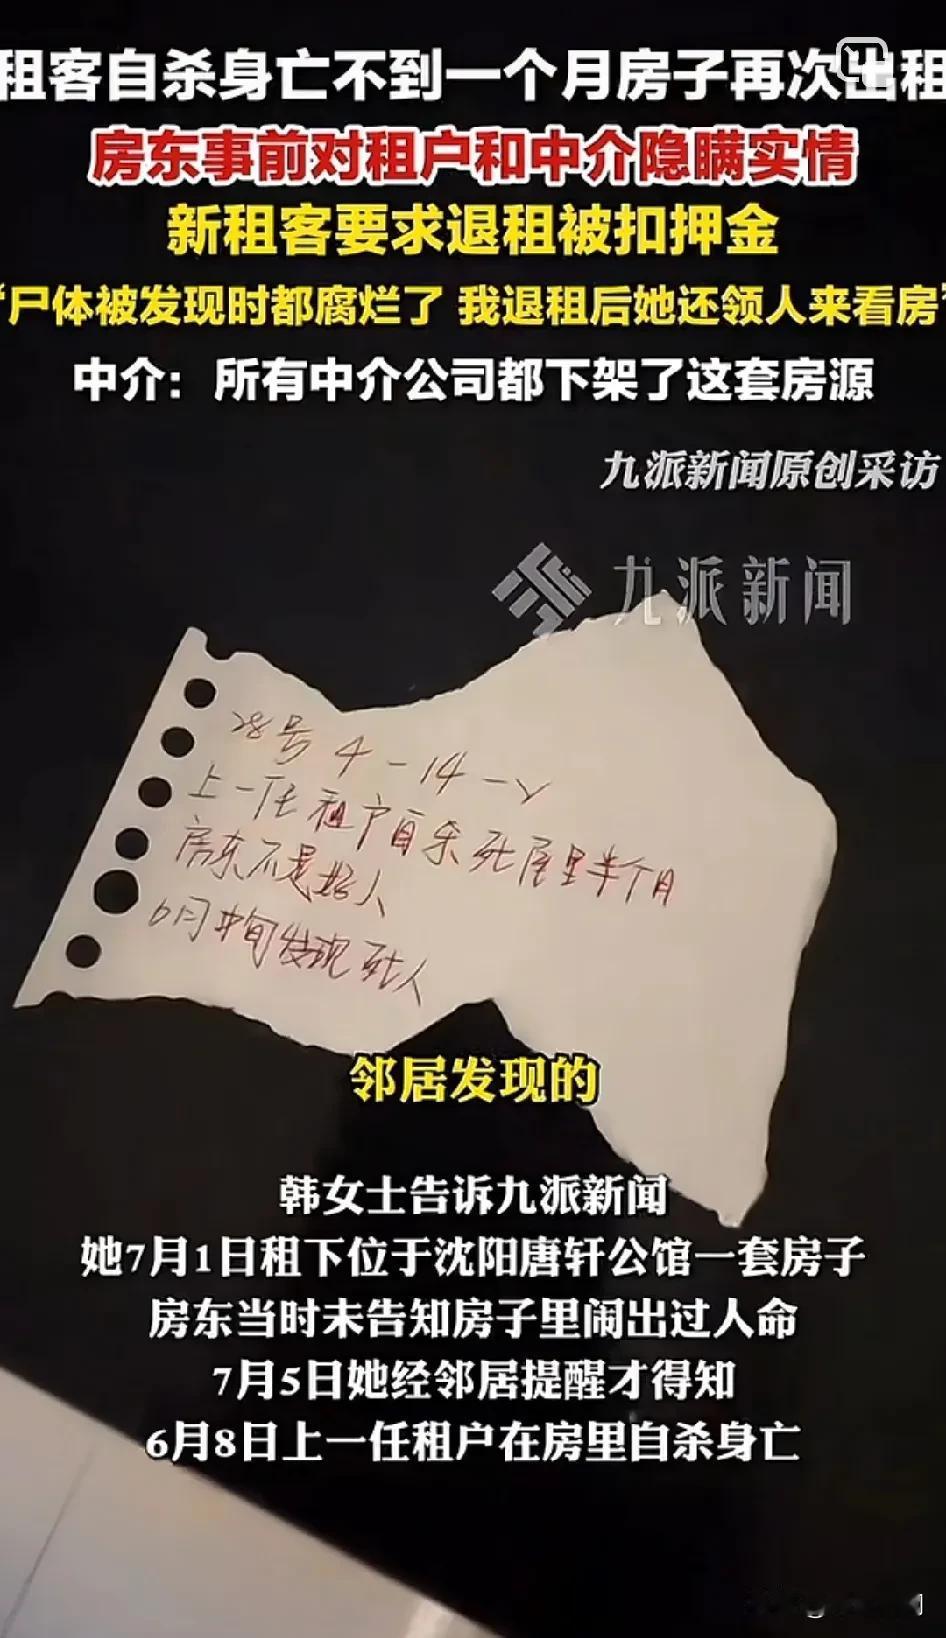 租客自杀身亡不到一个月房子再次出租
房东事前对租户和中介隐瞒实情
新租客要求退租被扣押金
“尸体被发现时都腐烂了 我退租后她还领人来看房”
中介：所有中介公司都下架了这套房源
九派新闻原创采访
九派新闻
28号 4-14-
上一任租户自杀死屋里半个月
房东不是好人
6月中旬发现死人
邻居发现的
韩女士告诉九派新闻
她7月1日租下位于沈阳唐轩公馆一套房子
房东当时未告知房子里闹出过人命
7月5日她经邻居提醒才得知
6月8日上一任租户在房里自杀身亡